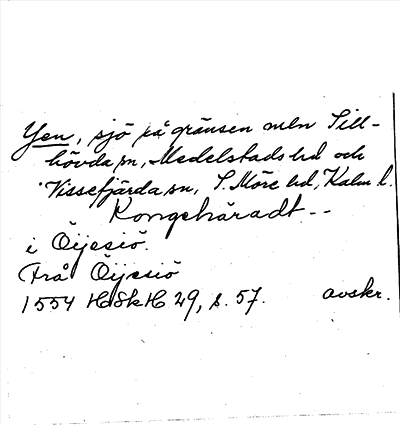 Yen, sjö på gränsen mln Till-
hövda sn, Medelstads hd och
Vissefjärda sn, S. Möre hd, Kalm l.
Kongehäradt--
i Öijesiö.
Från Öijesiö
1554 HSkH 29, s. 57. avskr.